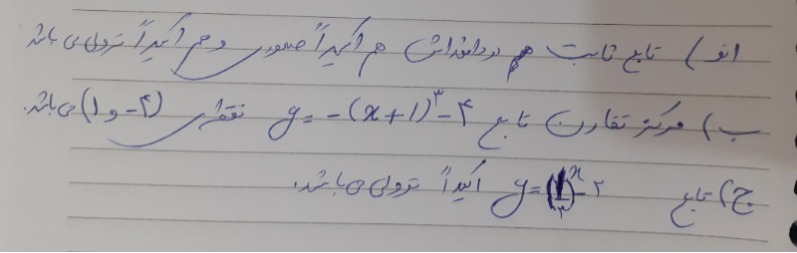 الف) تابع ثابت هم در دامنه‌اش هم اکیداً صعودی و هم اکیداً نزولی می باشد
ب) مرکز تقارن تابع y = -(x+1)^۳ - ۴ نقطه‌ی (۱ و -۴) می باشد.
ج) تابع y = (1/۳)^x - ۲ اکیداً نزولی می باشد.